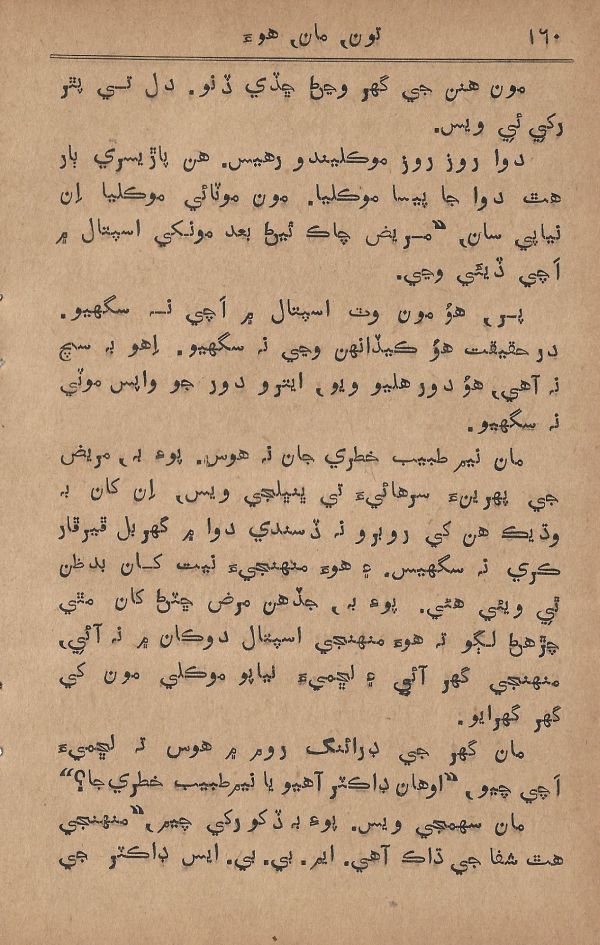 ۱٦۰ تون, مان, هوءَ
مون هنن جي گهر وڃڻ ڇڏي ڏنو. دل تي پٿر
رکي ئي ويس.
دوا روز روز موڪليندو رهيس. هن پاڙيسري ٻار
هٿ دوا جا پيسا موڪليا. مون موٽائي موڪليا اِن
نياپي سان, ”مريض چاڪ ٿيڻ بعد مونکي اسپتال ۾
اَچي ڏيئي وڃي.
پر, هوُ مون وٽ اسپتال ۾ اَچي نہ سگهيو.
در حقيقت هوُ ڪيڏانهن وڃي نہ سگهيو. اِهو بہ سچ
نہ آهي, هوُ دور هليو ويو, ايترو دور جو واپس موٽي
نہ سگهيو.
مان نيم طبيب خطري جان نہ هوس. پوءِ بہ, مريض
جي پهرينءَ سرهائيءَ تي ڀنڀلجي ويس, اِن کان بہ
وڌيڪ هن کي روبرو نہ ڏسندي دوا ۾ گهربل ڦيرڦار
ڪري نہ سگهيس. ۽ هوءَ منهنجيءَ نيت کان بدظن
ٿي ويئي هئي. پوءِ بہ, جڏهن مرض ڇٽڻ کان مٿي
چڙهڻ لڳو تہ هوءَ منهنجي اسپتال دوڪان ۾ نہ آئي,
منهنجي گهر آئي ۽ لڇميءَ نياپو موڪلي مون کي
گهر گهرايو.
مان گهر جي ڊرائنگ روم ۾ هوس تہ لڇميءَ
اَچي چيو, ”اوهان ڊاڪٽر آهيو يا نيم طبيب خطري جا؟“
مان سهمجي ويس. پوءِ بہ ڏک رکي چيم, ”منهنجي
هٿ شفا جي ڌاڪ آهي. ايم. بي. بي. ايس ڊاڪٽر جي